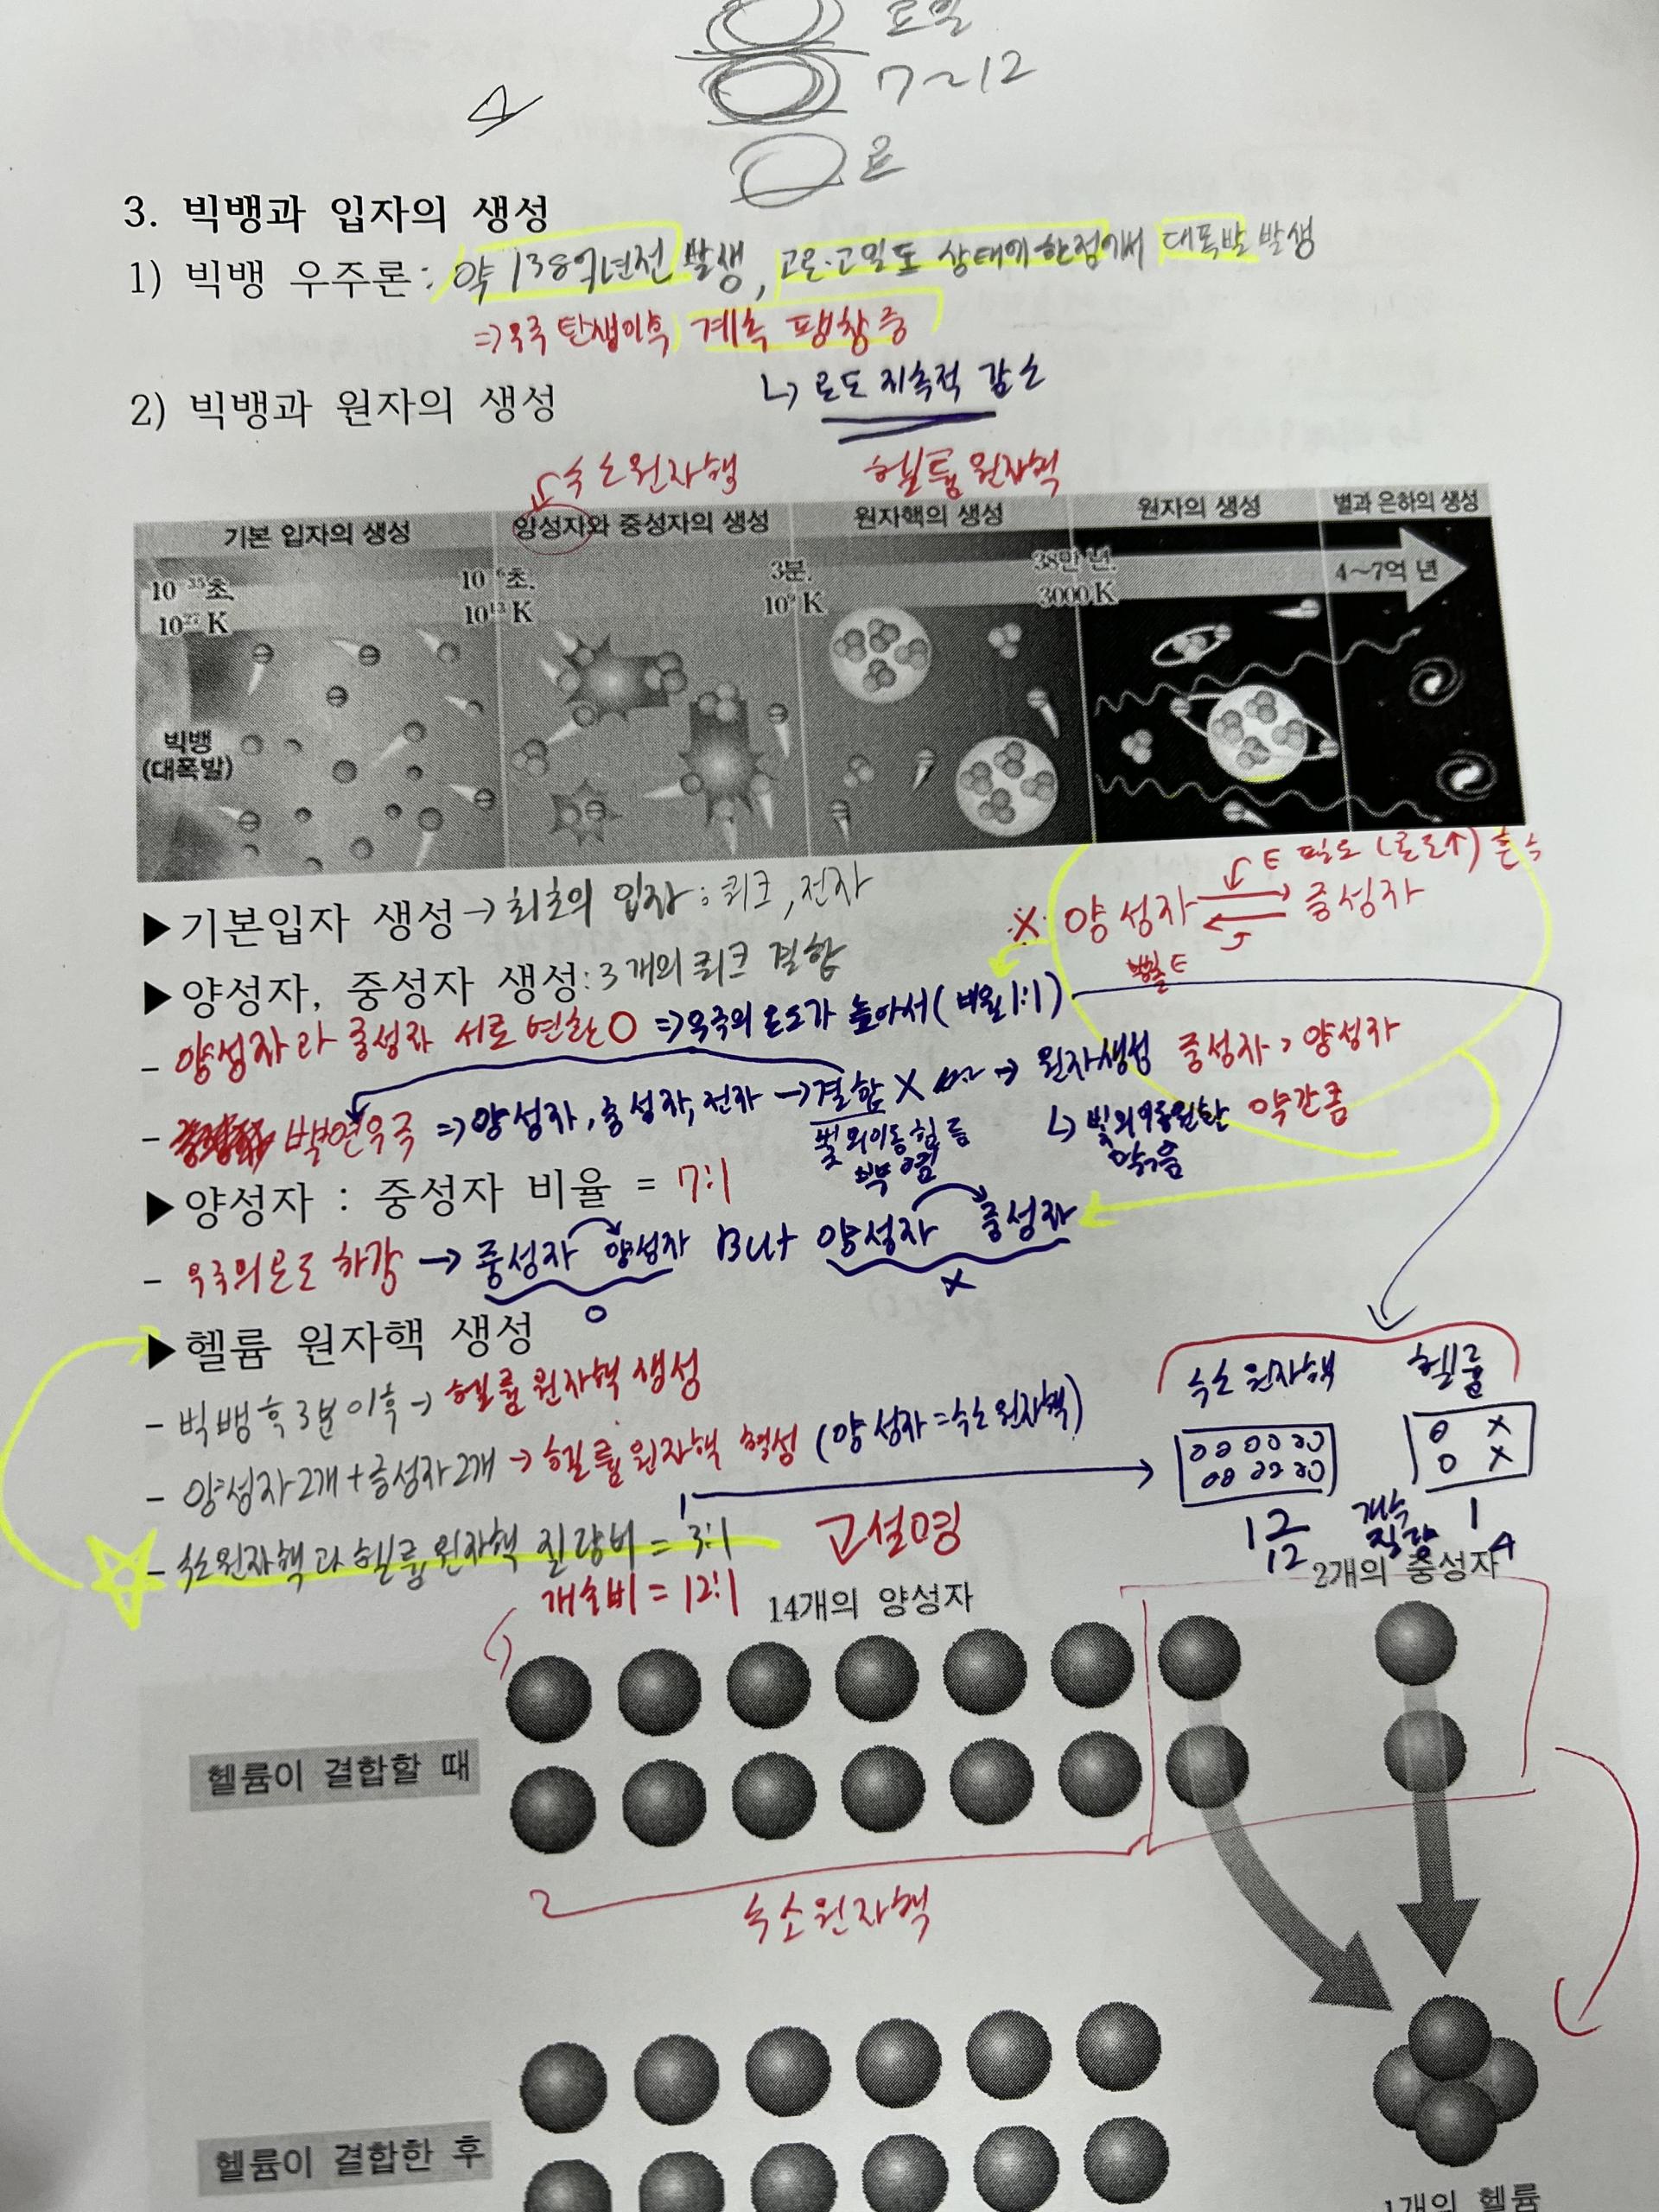 7~12
3. 빅뱅과 입자의 생성
1) 빅뱅 우주론 : 약 138억년전 발생, 고온·고밀도 상태의 한점에서 대폭발 발생
⇒ 우주 탄생이후 계속 팽창중
2) 빅뱅과 원자의 생성
↳ 온도 지속적 감소
수소원자핵 헬륨 원자핵
기본 입자의 생성 양성자와 중성자의 생성 원자핵의 생성 원자의 생성 별과 은하의 생성
10⁻³⁵초, 10⁻⁶초, 3분, 38만 년, 4~7억 년
10²⁷ K 10¹³ K 10⁹ K 3000 K
빅뱅
(대폭발)
E 필요 (온도↑) 흡수
▶ 기본입자 생성 → 최초의 입자 : 쿼크, 전자
X· 양성자 중성자
방출 E
▶ 양성자, 중성자 생성 : 3개의 쿼크 결합
- 양성자과 중성자 서로 변환 O ⇒ 우주의 온도가 높아서 (비율 1:1)
- 우주 ⇒ 양성자, 중성자, 전자 → 결합 X → 원자생성 중성자 > 양성자
약간 큼
빛의 이동 힘듦
▶ 양성자 : 중성자 비율 = 7:1
- 우주의 온도 하강 → 중성자 양성자 But 양성자 중성자
O X
▶ 헬륨 원자핵 생성
- 빅뱅 후 3분 이후 → 헬륨 원자핵 생성
수소 원자핵 헬륨
- 양성자 2개 + 중성자 2개 → 헬륨 원자핵 형성 (양성자 = 수소 원자핵)
12 개수 1
12 질량 4
- 수소원자핵과 헬륨 원자핵 질량비 = 3:1
고설명
개수비 = 12:1
14개의 양성자 2개의 중성자
헬륨이 결합할 때
수소원자핵
헬륨이 결합한 후
1개의 헬륨